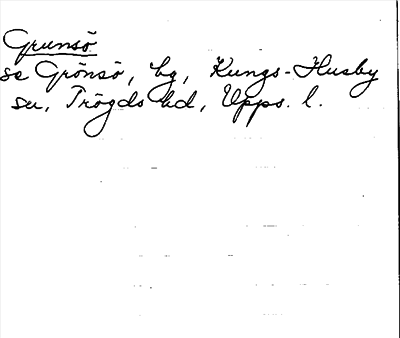 Grunsö
se Grönsö, bg, Kungs-Husby
sn, Trögds hd, Upps. l.